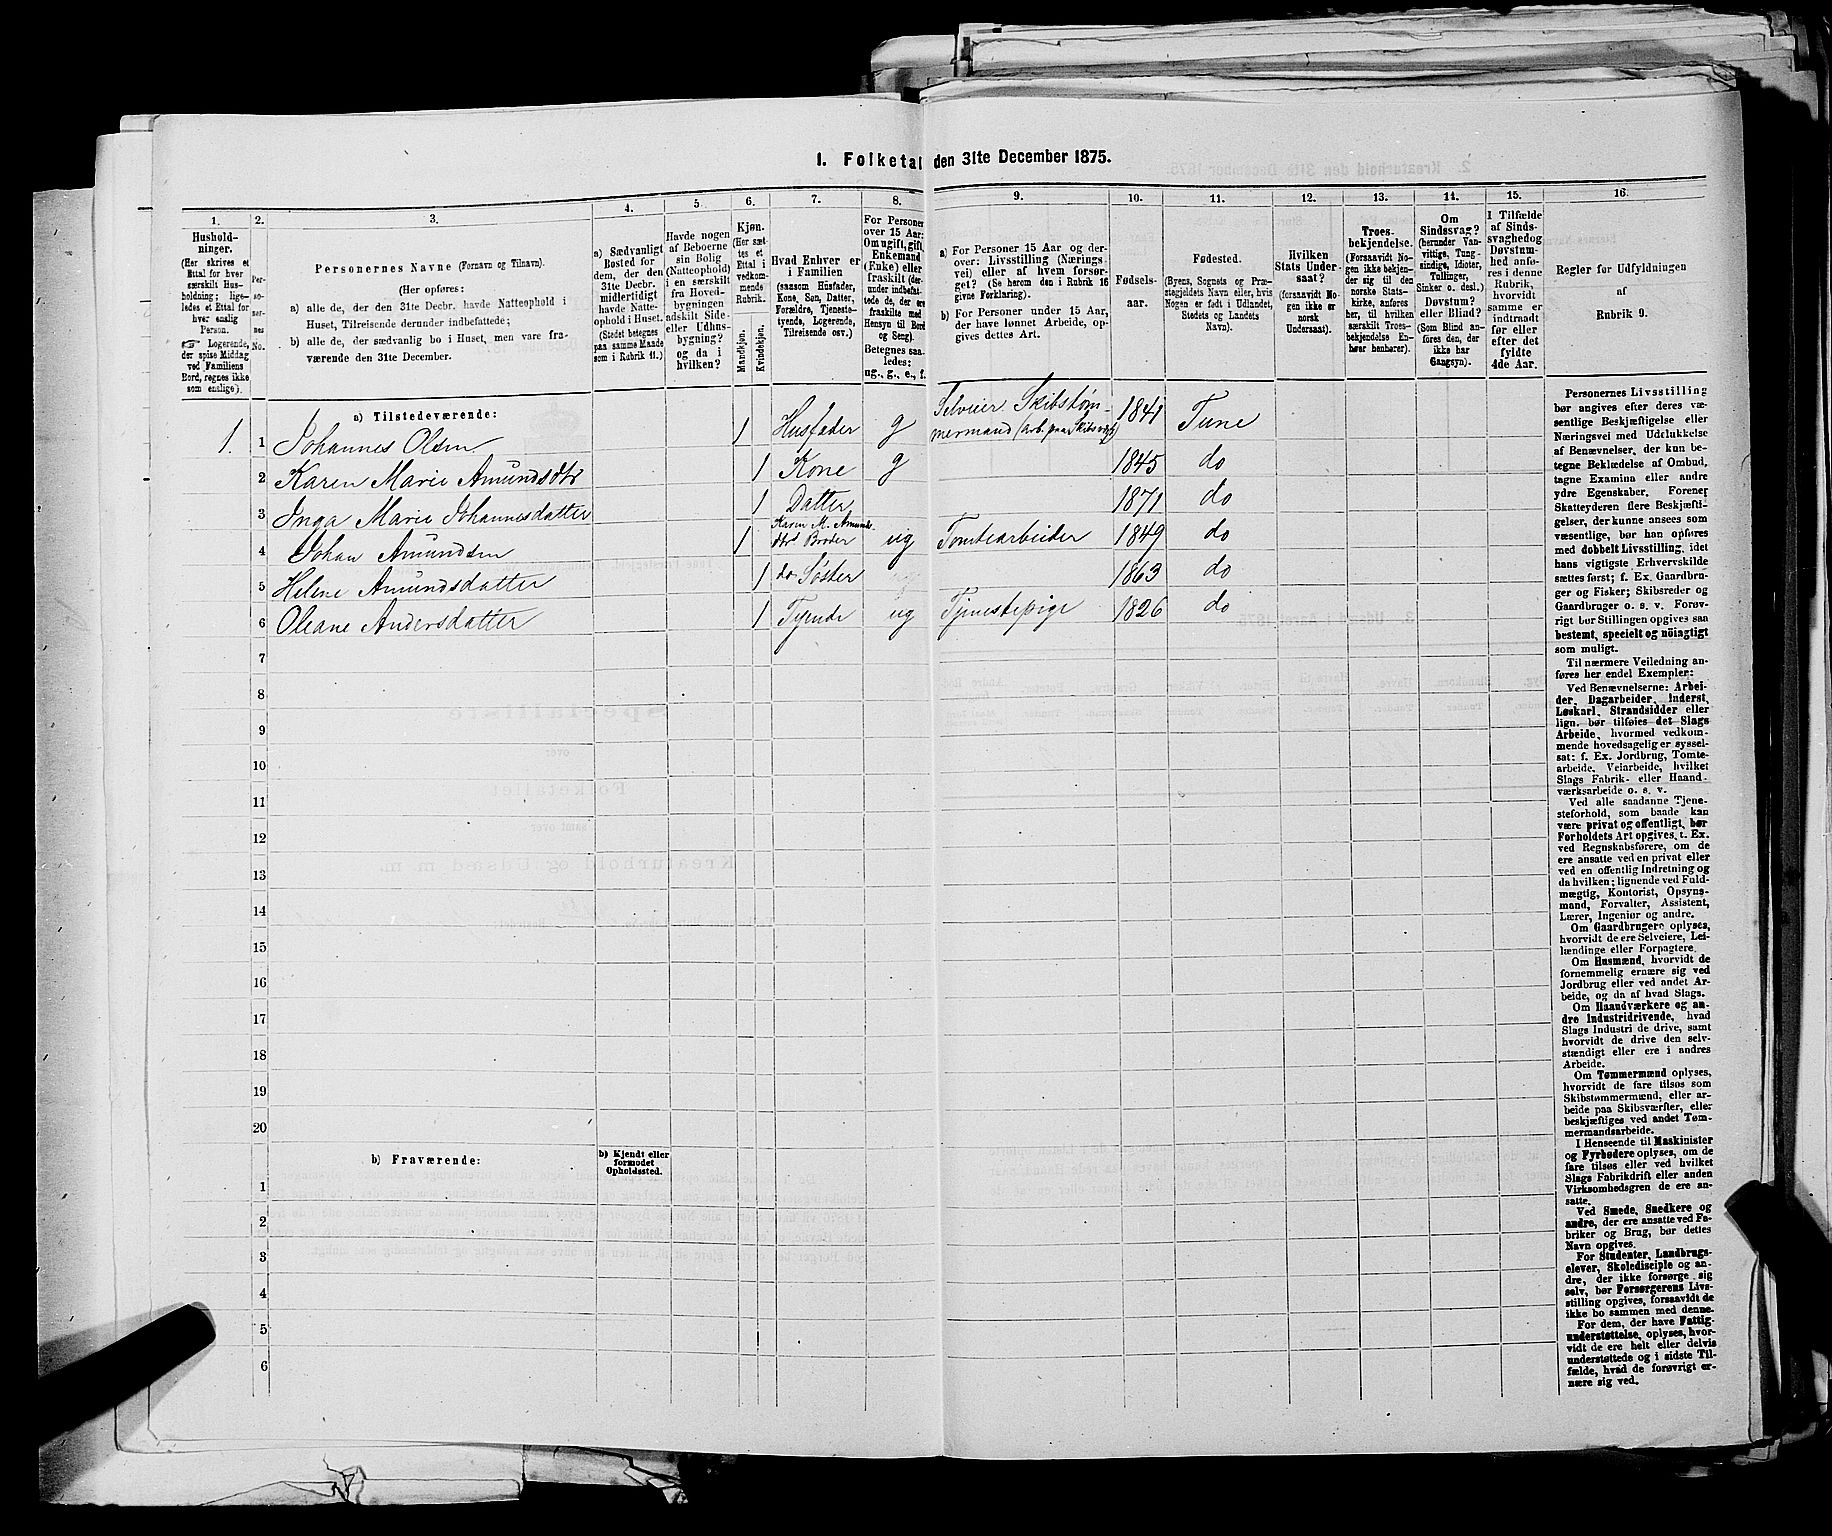 1. Folketal den 31te December 1875.
1.
Hushold-
ninger.
(Her skrives et
Ettal for hver
særskilt Hus-
holdning; lige-
ledes et Ettal for
hver enslig
Person.
☞ Logerende,
der spise Middag
ved Familiens
Bord, regnes ikke
som enslige).
2.
Per-
so-
ner-
nes
No.
3.
Personernes Navne (Fornavn og Tilnavn).
(Her opføres:
a) alle de, der den 31te Decbr. havde Natteophold i
Huset, Tilreisende derunder indbefattede;
b) alle de, der sædvanlig bo i Huset, men vare fra-
værende den 31te December.
4.
a) Sædvanligt
Bosted for
dem, der den
31te Decbr.
midlertidigt
havde Natte-
ophold i Huset.
(Stedet betegnes
paa samme Maade
som i Rubrik 11.)
5.
Havde nogen
af Beboerne
sin Bolig
(Natteophold)
i en særskilt
fra Hoved-
bygningen
adskilt Side-
eller Udhus-
bygning?
og da i
hvilken?
6.
Kjøn.
(Her sæt-
tes et
Ettal i
vedkom-
mende
Rubrik.
Mandkjøn.
Kvindekjøn.
7.
Hvad Enhver er
i Familien
(saasom Husfader,
Kone, Søn, Datter,
Forældre, Tjeneste-
tyende, Logerende,
Tilreisende osv.)
8.
For Personer
over 15 Aar:
Om ugift, gift,
Enkemand
(Enke) eller
fraskilt (der-
under indbefat-
tede de, der ere
fraskilte med
Hensyn til Bord
og Seng).
Betegnes saa-
ledes:
ug., g., e., f.
9.
a) For Personer 15 Aar og der-
over: Livsstilling (Nærings-
vei) eller af hvem forsør-
get? (Se herom den i Rubrik 16
givne Forklaring).
b) For Personer under 15 Aar,
der have lønnet Arbeide, op-
gives dettes Art.
10.
Fødsels-
aar.
11.
Fødested.
(Byens, Sognets og Præ-
stegjeldets Navn eller, hvis
Nogen er født i Udlandet,
Stedets og Landets
Navn).
12.
Hvilken
Stats Under-
saat?
(forsaavidt No-
gen ikke er
norsk
Undersaat).
13.
Troes-
bekjendelse.
(Forsaavidt No-
gen ikke bekjen-
der sig til den
norske Stats-
kirke, anføres
her, til hvilken
særskilt Troes-
bekjendelse En-
hver henhører).
14.
Om
Sindssvag?
(herunder Van-
vittige, Tung-
sindige, Idioter,
Tullinger,
Sinker o. desl.)
Døvstum?
eller Blind?
(Som Blind an-
føres den, der
ikke har
Gangsyn).
15.
I Tilfælde
af Sinds-
svaghed og
Døvstum-
hed anfø-
res i denne
Rubrik,
hvorvidt
samme er
indtraadt
før eller
efter det
fyldte
4de Aar.
16.
Regler for Udfyldningen
af
Rubrik 9.
a) Tilstedeværende:
1. 1 Johannes Olsen 1 Husfader g Selveier. Skibstøm-
mermand (Arb. paa Skibsværft) 1841 Tune
2 Karen Marie Amundsdtr 1 Kone g 1845 do
3 Inga Marie Johannesdatter 1 Datter 1871 do
4 Johan Amundsen 1 Karen M. Amunds-
dtrs Broder ug Tomtearbeider 1849 do
5 Helene Amundsdatter 1 do Søster 1863 do
6 Oleane Andersdatter 1 Tyende ug Tjenestepige 1826 do
7
8
9
10
11
12
13
14
15
16
17
18
19
20
b) Fraværende:
b) Kjendt eller
formodet
Opholdssted.
1
2
3
4
5
6
Personernes Livsstilling
bør angives efter deres væ-
sentlige Beskjæftigelse eller
Næringsvei med Udelukkelse
af Benævnelser, der kun be-
tegne Beklædelse af Ombud,
tagne Examina eller andre
ydre Egenskaber. Forener
Skatteyderen flere Beskjæfti-
gelser, der kunne ansees som
væsentlige, bør han opføres
med dobbelt Livsstilling, idet
hans vigtigste Erhvervskilde
sættes først; f. Ex. Gaardbru-
ger og Fisker; Skibsreder og
Gaardbruger o. s. v. Forøv-
rigt bør Stillingen opgives saa
bestemt, specielt og nöiagtigt
som muligt.
Til nærmere Veiledning an-
føres her endel Exempler:
Ved Benævnelserne: Arbei-
der, Dagarbeider, Inderst,
Løskarl, Strandsidder eller
lign. bør tilføies det Slags
Arbeide, hvormed vedkom-
mende hovedsagelig er syssel-
sat: f. Ex. Jordbrug, Tomte-
arbeide, Veiarbeide, hvilket
Slags Fabrik- eller Haand-
værksarbeide o. s. v.
Ved alle saadanne Tjene-
steforhold, som baade kan
være privat og offentligt, bør
Forholdets Art opgives, t. Ex.
ved Regnskabsførere, om de
ere ansatte ved en privat eller
ved en offentlig Indretning og
da hvilken; lignende ved Fuld-
mægtig, Kontorist, Opsyns-
mand, Forvalter, Assistent,
Lærer, Ingeniør og andre.
Om Gaardbrugere oplyses,
hvorvidt de ere Selveiere, Lei-
lændinge eller Forpagtere.
Om Husmænd, hvorvidt de
fornemmelig ernære sig ved
Jordbrug eller ved andet Ar-
beide, og da af hvad Slags.
Om Haandværkere og an-
dre Industridrivende, hvad
Slags Industri de drive, samt
hvorvidt de drive den selv-
stændigt eller ere i andres
Arbeide.
Om Tømmermænd oplyses,
hvorvidt de fare tilsøs som
Skibstømmermænd, eller ar-
beide paa Skibsværfter, eller
beskjæftiges ved andet Tøm-
mermandsarbeide.
I Henseende til Maskinister
og Fyrbødere oplyses, om de
fare tilsøs eller ved hvilket
Slags Fabrikdrift eller anden
Virksomhedsgren de ere an-
satte.
Ved Smede, Snedkere og
andre, der ere ansatte ved Fa-
briker og Brug, bør dettes
Navn opgives.
For Studenter, Landbrugs-
elever, Skoledisciple og an-
dre, der ikke forsørge sig
selv, bør Forsørgerens Livs-
stilling opgives, forsaavidt de
ikke bo sammen med denne.
For dem, der have Fattig-
understøttelse, oplyses, hvor-
vidt de ere helt eller delvis
understøttede og i sidste Til-
fælde, hvad de forøvrigt er-
nære sig ved.